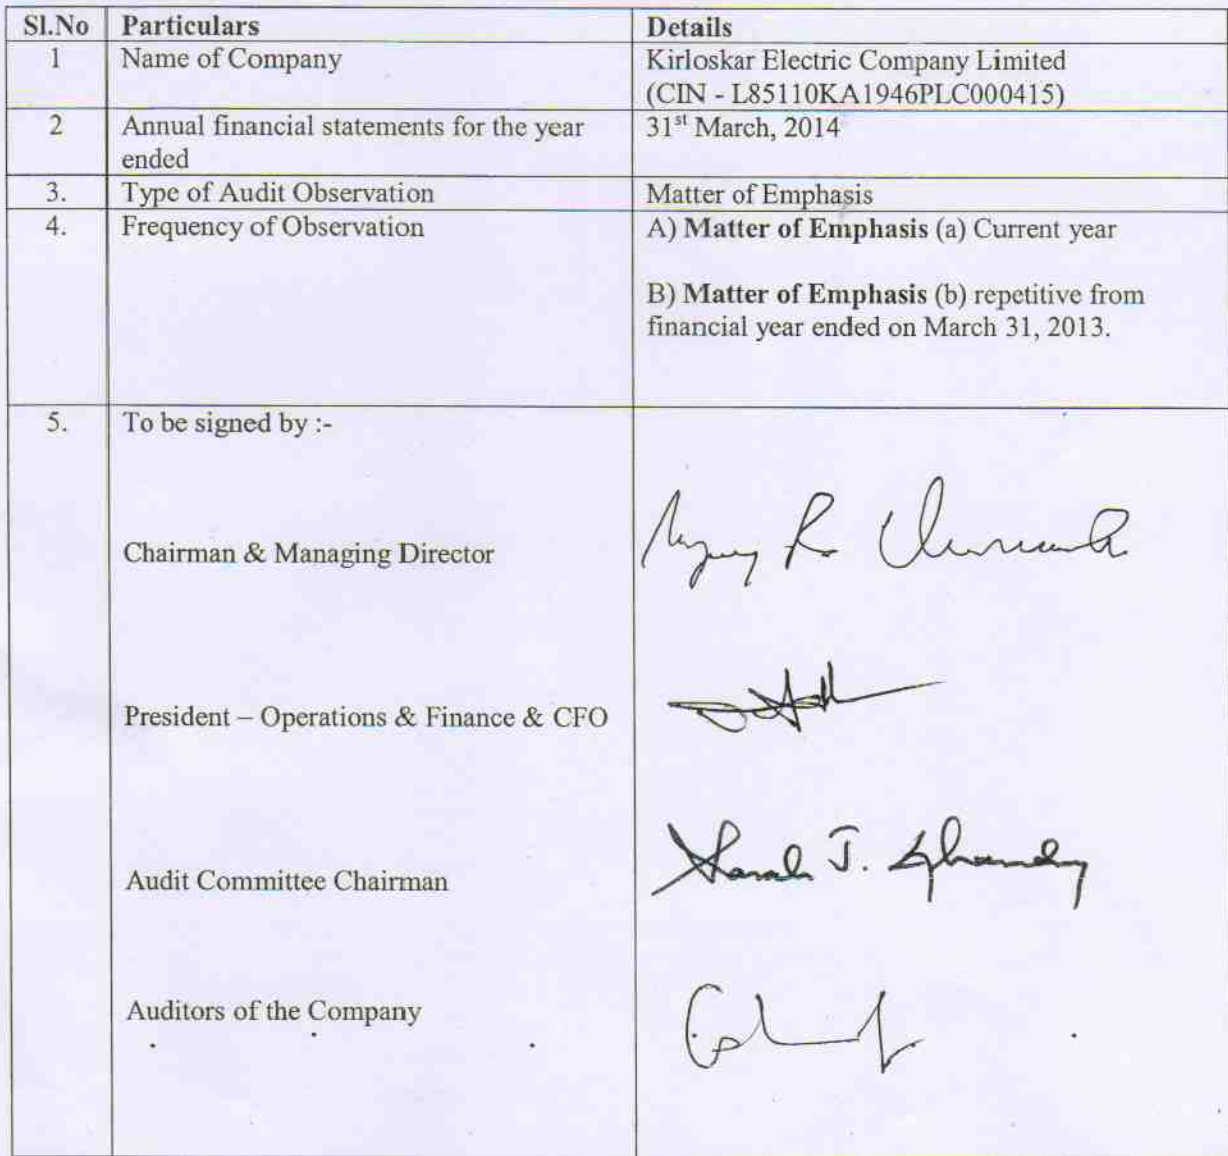 Sl.No Particulars Details
1 Name of Company Kirloskar Electric Company Limited
(CIN - L85110KA1946PLC000415)
2 Annual financial statements for the year 31st March, 2014
ended
3. Type of Audit Observation Matter of Emphasis
4. Frequency of Observation A) Matter of Emphasis (a) Current year
B) Matter of Emphasis (b) repetitive from
financial year ended on March 31, 2013.
5. To be signed by :-
Chairman & Managing Director
President – Operations & Finance & CFO
Audit Committee Chairman J.
Auditors of the Company